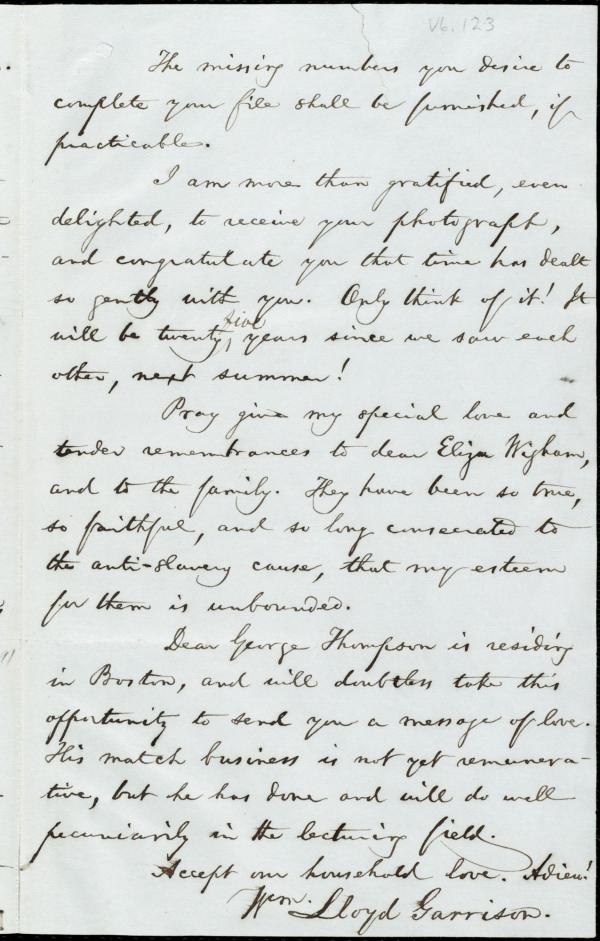 V6.123
The missing numbers you desire to
complete your file shall be furnished, if
practicable.
I am more than gratified, even
delighted, to receive your photograph,
and congratulate you that time has dealt
so gently with you. Only think of it! It
will be twenty five years since we saw each
other, next summer!
Pray give my special love and
tender remembrances to dear Eliza Wigham,
and to the family. They have been so true,
so faithful, and so long consecrated to
the anti-slavery cause, that my esteem
for them is unbounded.
Dear George Thompson is residing
in Boston, and will doubtless take this
opportunity to send you a message of love.
His match business is not yet remunera-
tive, but he has done and will do well
pecuniarily in the lecturing field.
Accept our household love. Adieu!
Wm. Lloyd Garrison.